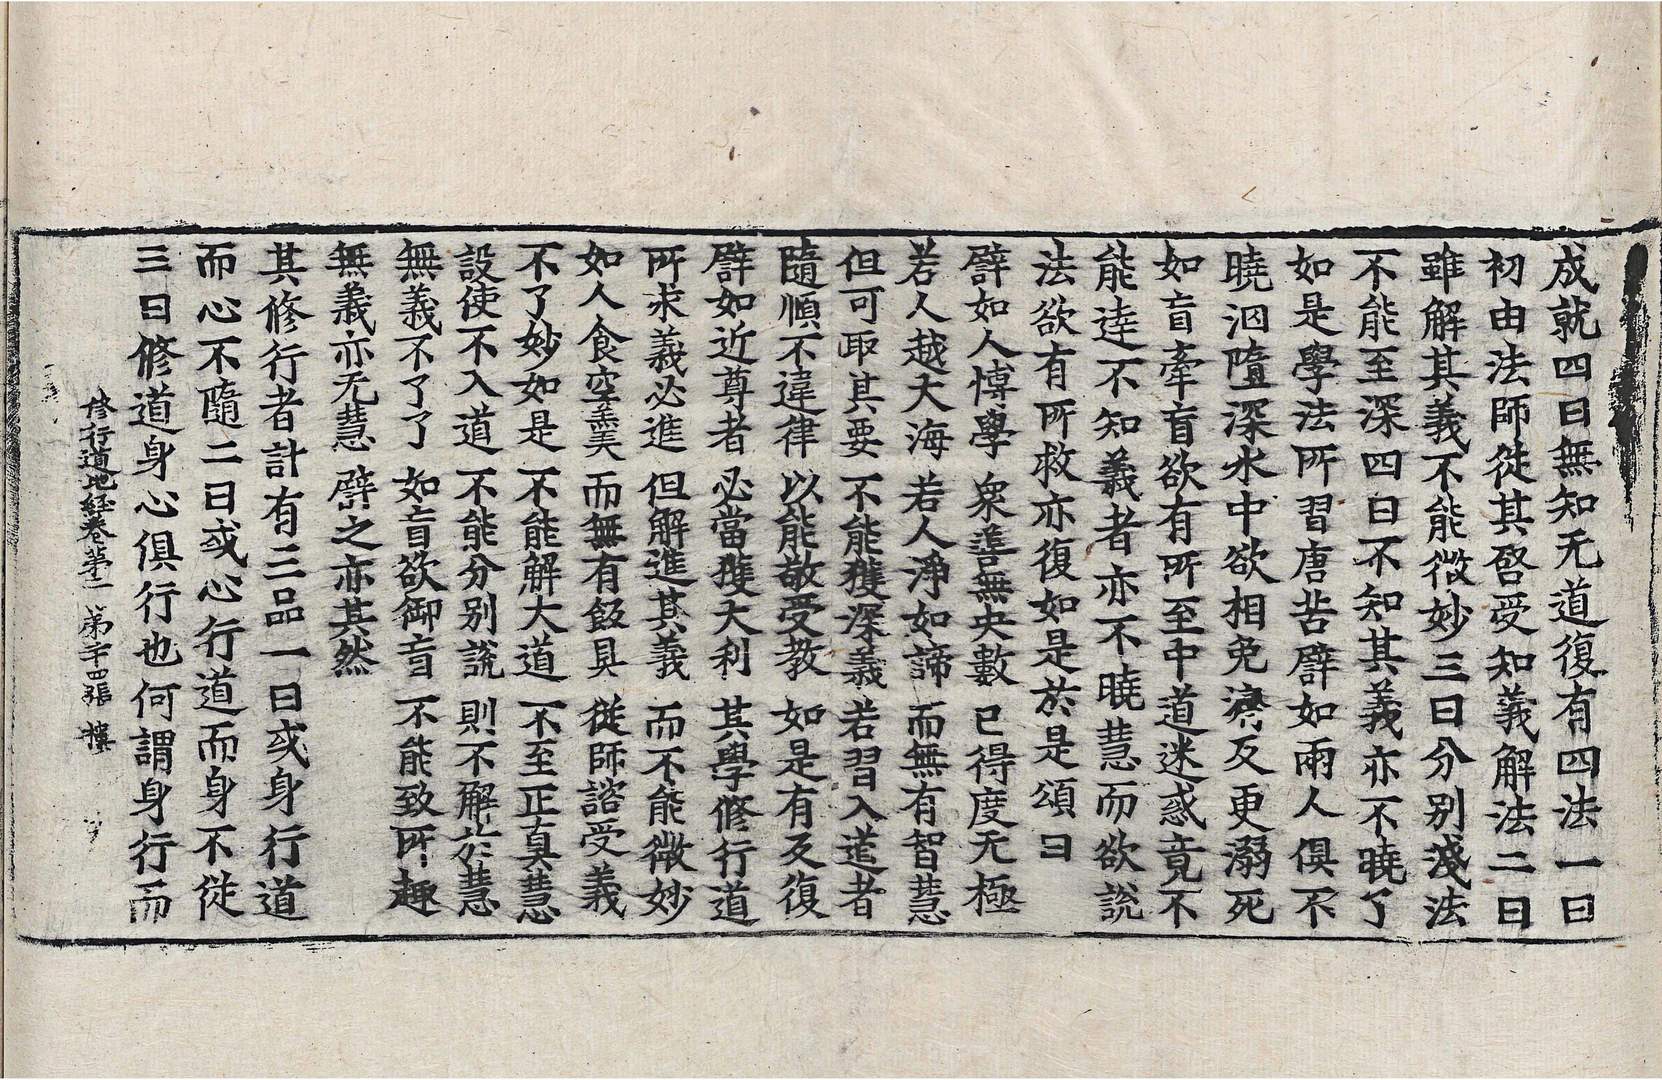 成就四曰無知无道復有四法一曰
初由法師從其啓受知義解法二曰
雖解其義不能微妙三曰分别淺法
不能至深四曰不知其義亦不曉了
如是學法所習唐苦譬如兩人俱不
曉泅墮深水中欲相免濟反更溺死
如盲牽盲欲有所至中道迷惑竟不
能逹不知義者亦不曉慧而欲說
法欲有所救亦復如是於是頌曰
譬如人博學 衆善無央數 已得度无極
若人越大海 若人淨如諦 而無有智慧
但可取其要 不能獲深義 若習入道者
隨順不違律 以能敬受教 如是有反復
譬如近尊者 必當獲大利 其學修行道
所求義必進 但解進其義 而不能微妙
如人食空羹 而無有飯具 從師諮受義
不了妙如是 不能解大道 不至正真慧
設使不入道 不能分别說 則不解於慧
無義不了了 如盲欲御盲 不能致所趣
無義亦无慧 譬之亦其然
其修行者計有三品一曰或身行道
而心不隨二曰或心行道而身不從
三曰修道身心俱行也何謂身行而
修行道地經卷第二 第十四張 樓